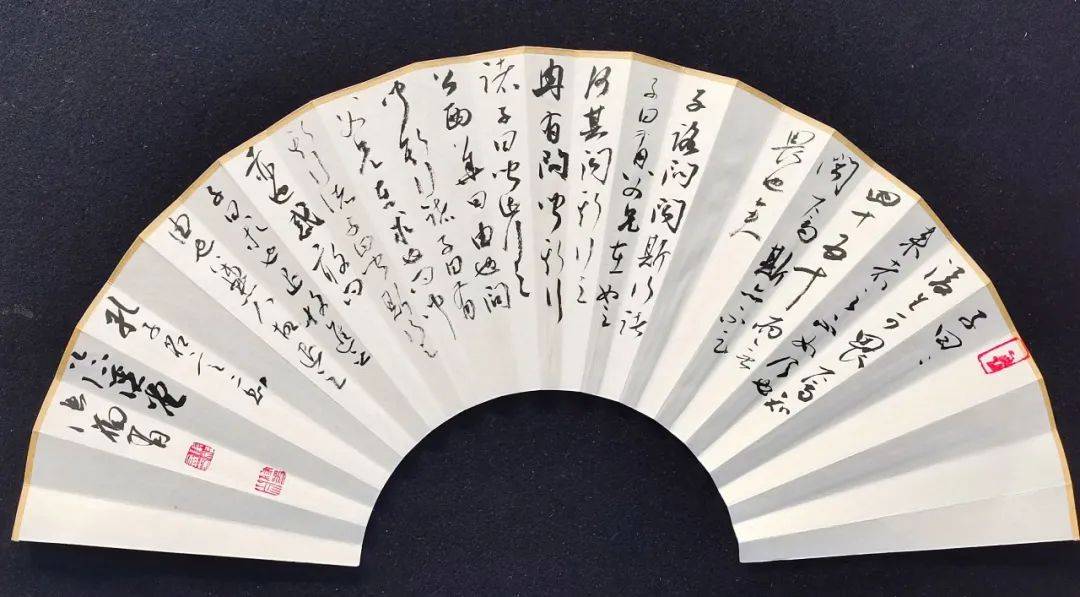 子曰：
后生可畏焉知
来者之不如今也
四十五十而无
闻焉斯亦不足
畏也矣
子路问闻斯行诸
子曰有父兄在如之
何其闻斯行之
冉有问闻斯行
诸子曰闻斯行之
公西华曰由也问
闻斯行诸子曰有
父兄在求也问闻
斯行诸子曰闻斯行之
赤也惑敢问
子曰求也退故进之
由也兼人故退之
孔子